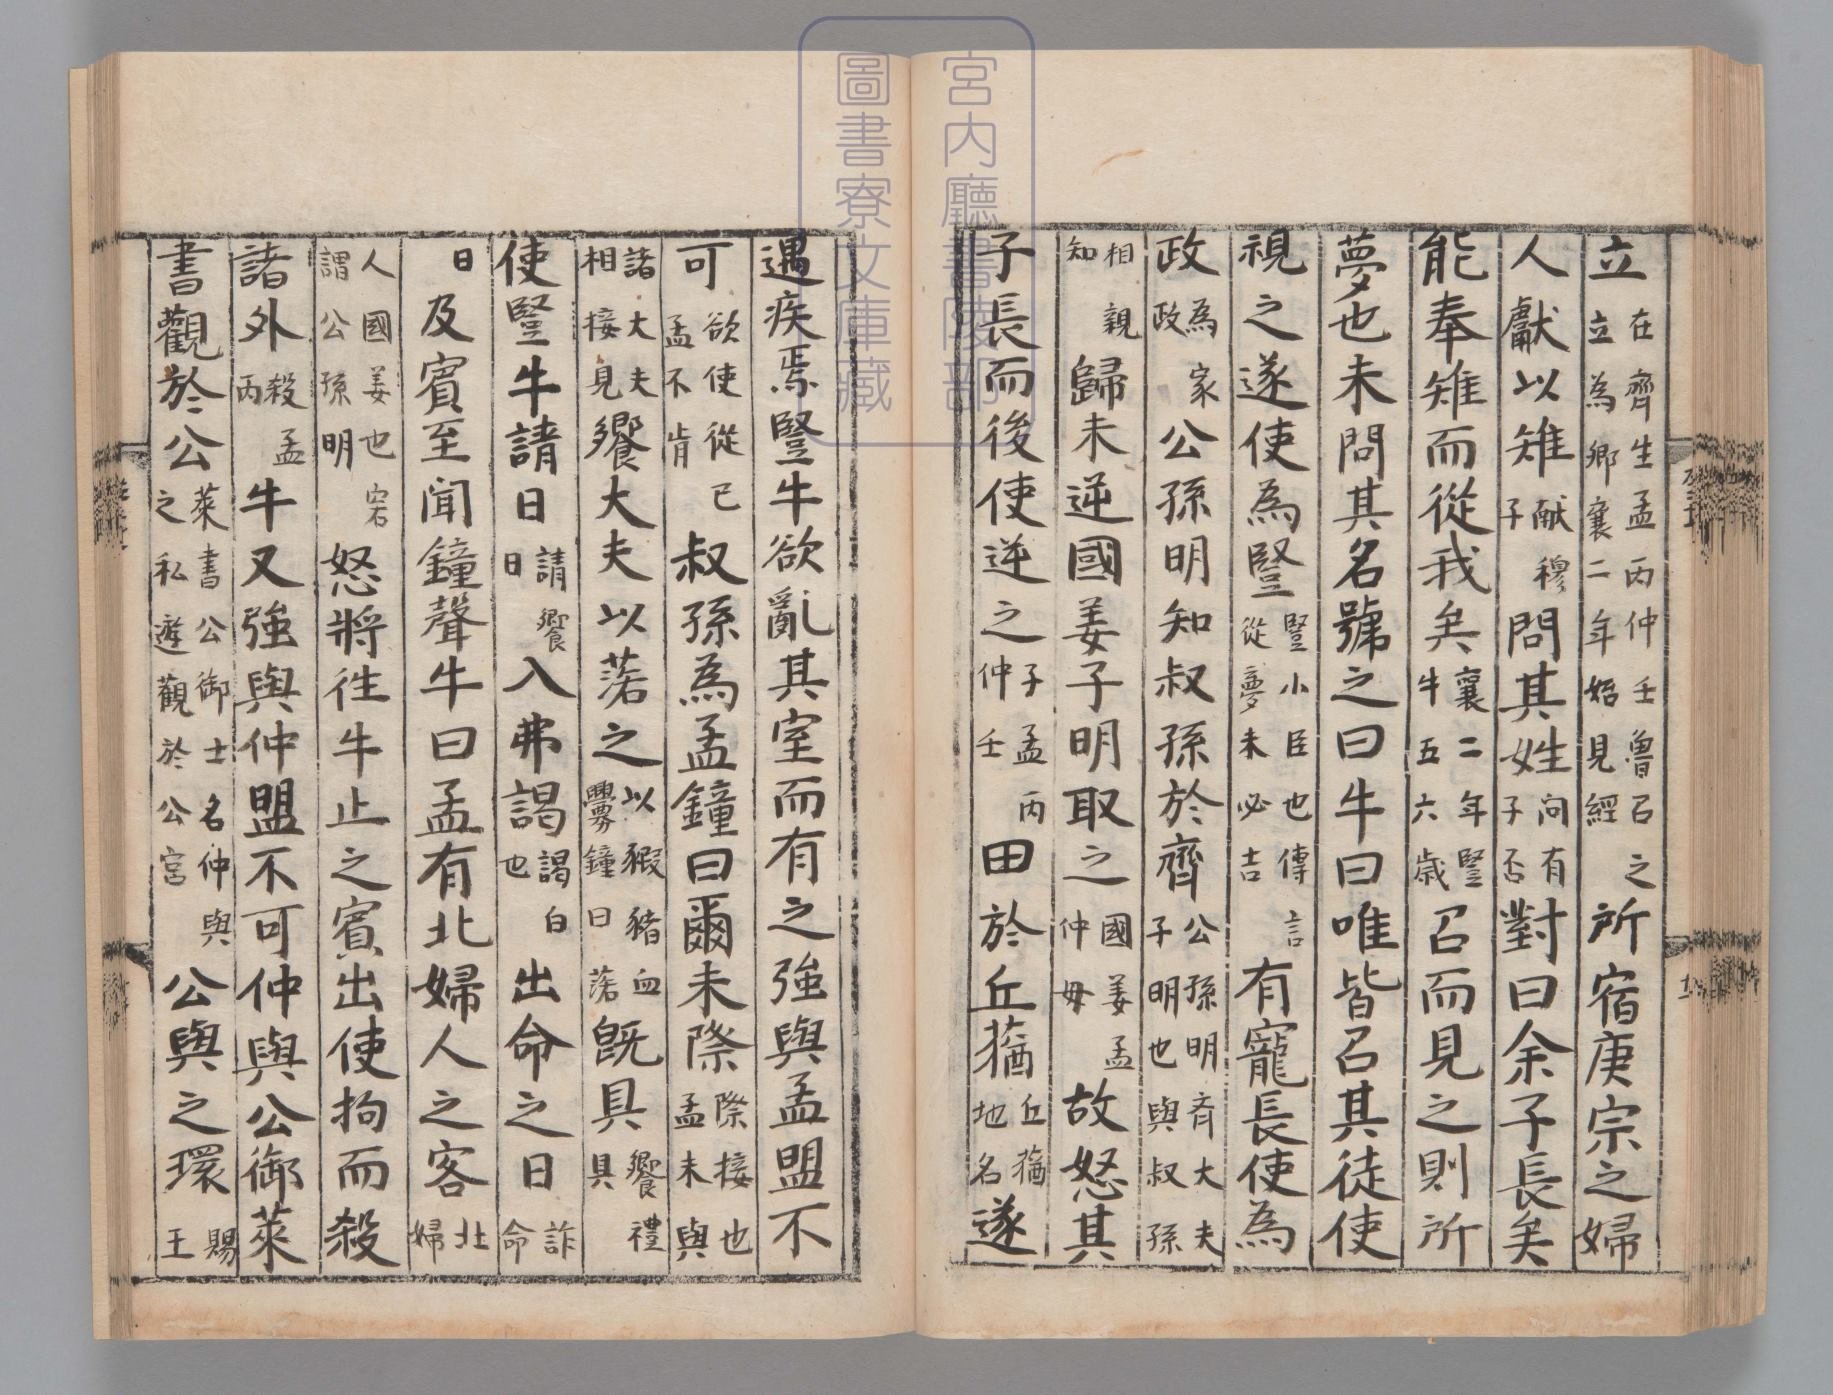 立在齊生孟丙仲壬魯召之立為鄉襄二年始見經所宿庚宗之婦
人獻以雉献穆子問其姓问有子否對曰余子長矣
能奉雉而從我矣襄二年豎牛五六歳召而見之則所
夢也未問其名號之曰牛曰唯皆召其徒使
視之遂使為豎豎小臣也傳言從夢未必吉有寵長使為
政為家政公孫明知叔孫於齊公孫明斉大夫子明也與叔孫
相親知歸未逆國姜子明取之國姜孟仲母故怒其
子長而後使逆之子孟丙仲壬田於丘蕕丘蕕地名遂
遇疾焉豎牛欲亂其室而有之強與孟盟不
可欲使從己孟不肯叔孫為孟鐘曰爾未際際接也孟未與
諸大夫相接見饗大夫以落之以豭豬血釁鐘曰落既具饗禮具
使豎牛請日請饗日入弗謁謁白也出命之日詐命
日及賓至聞鐘聲牛曰孟有北婦人之客北婦
人國姜也客謂公孫明怒將徃牛止之賓出使拘而殺
諸外殺孟丙牛又強與仲盟不可仲與公御萊
書觀於公萊書公御士名仲與之私遊觀於公宮公與之環賜玉
宮内廳書陵部
圖書寮文庫藏